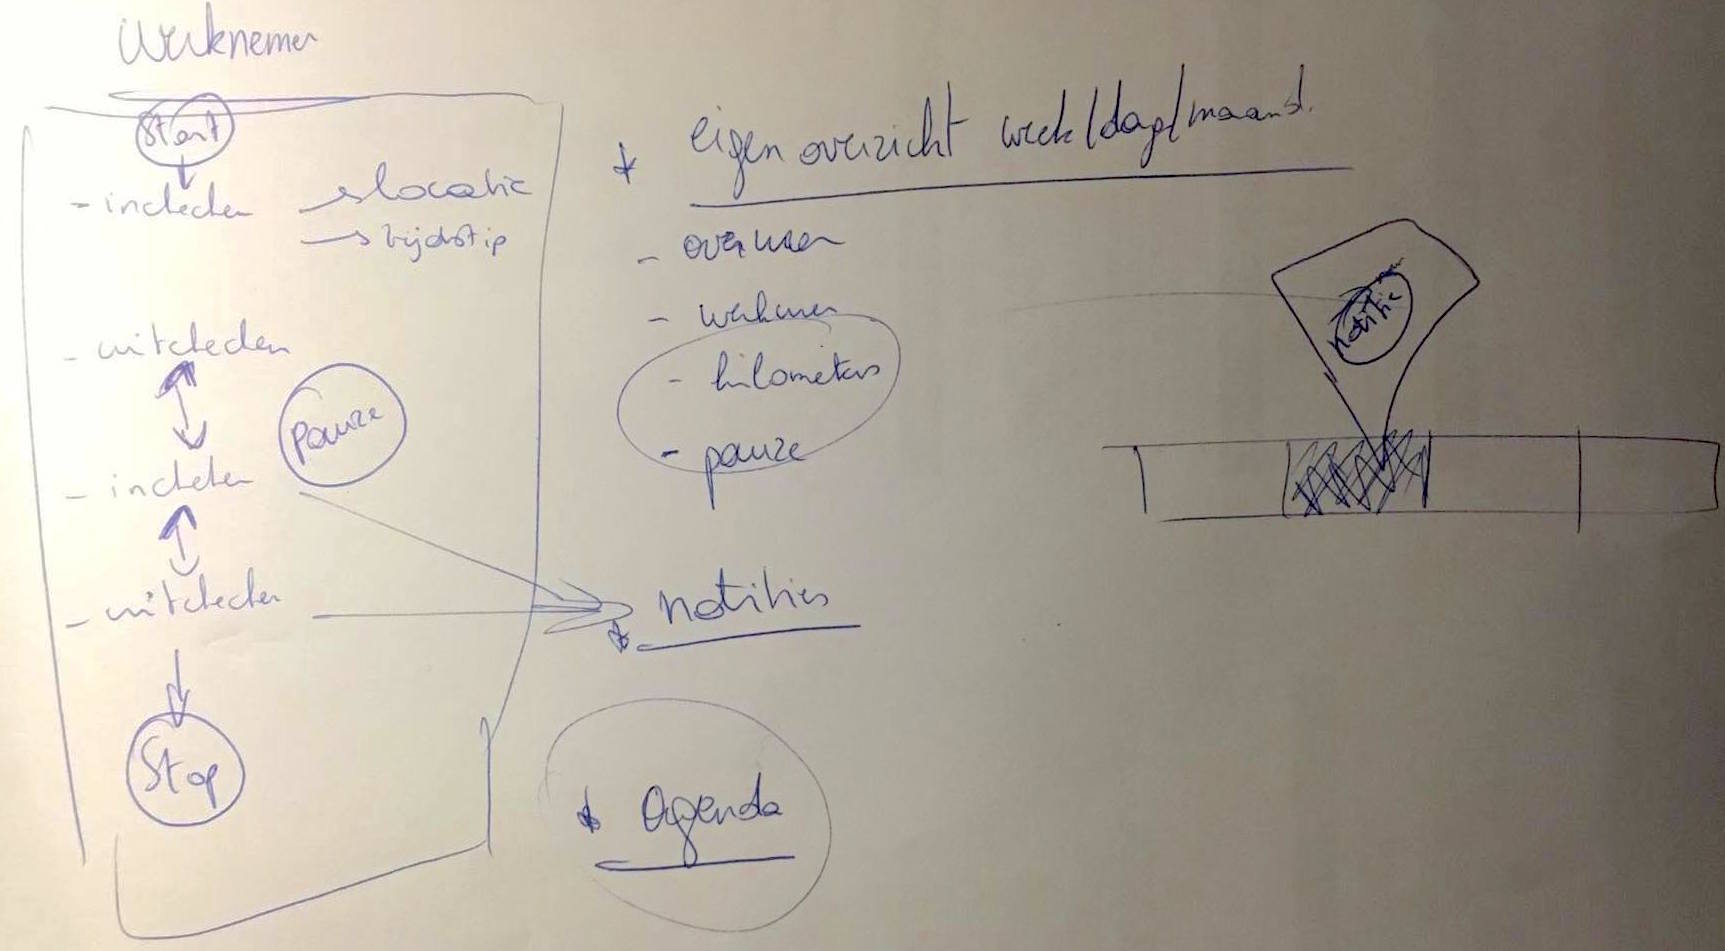 Werknemer
Start
- inchecken → locatie
→ tijdstip
- uitchecken
Pauze
- inchecken
- uitchecken
Stop
* eigen overzicht week/dag/maand.
- overuren
- werkuren
- kilometers
- pauze
* notities
* Agenda
notitie